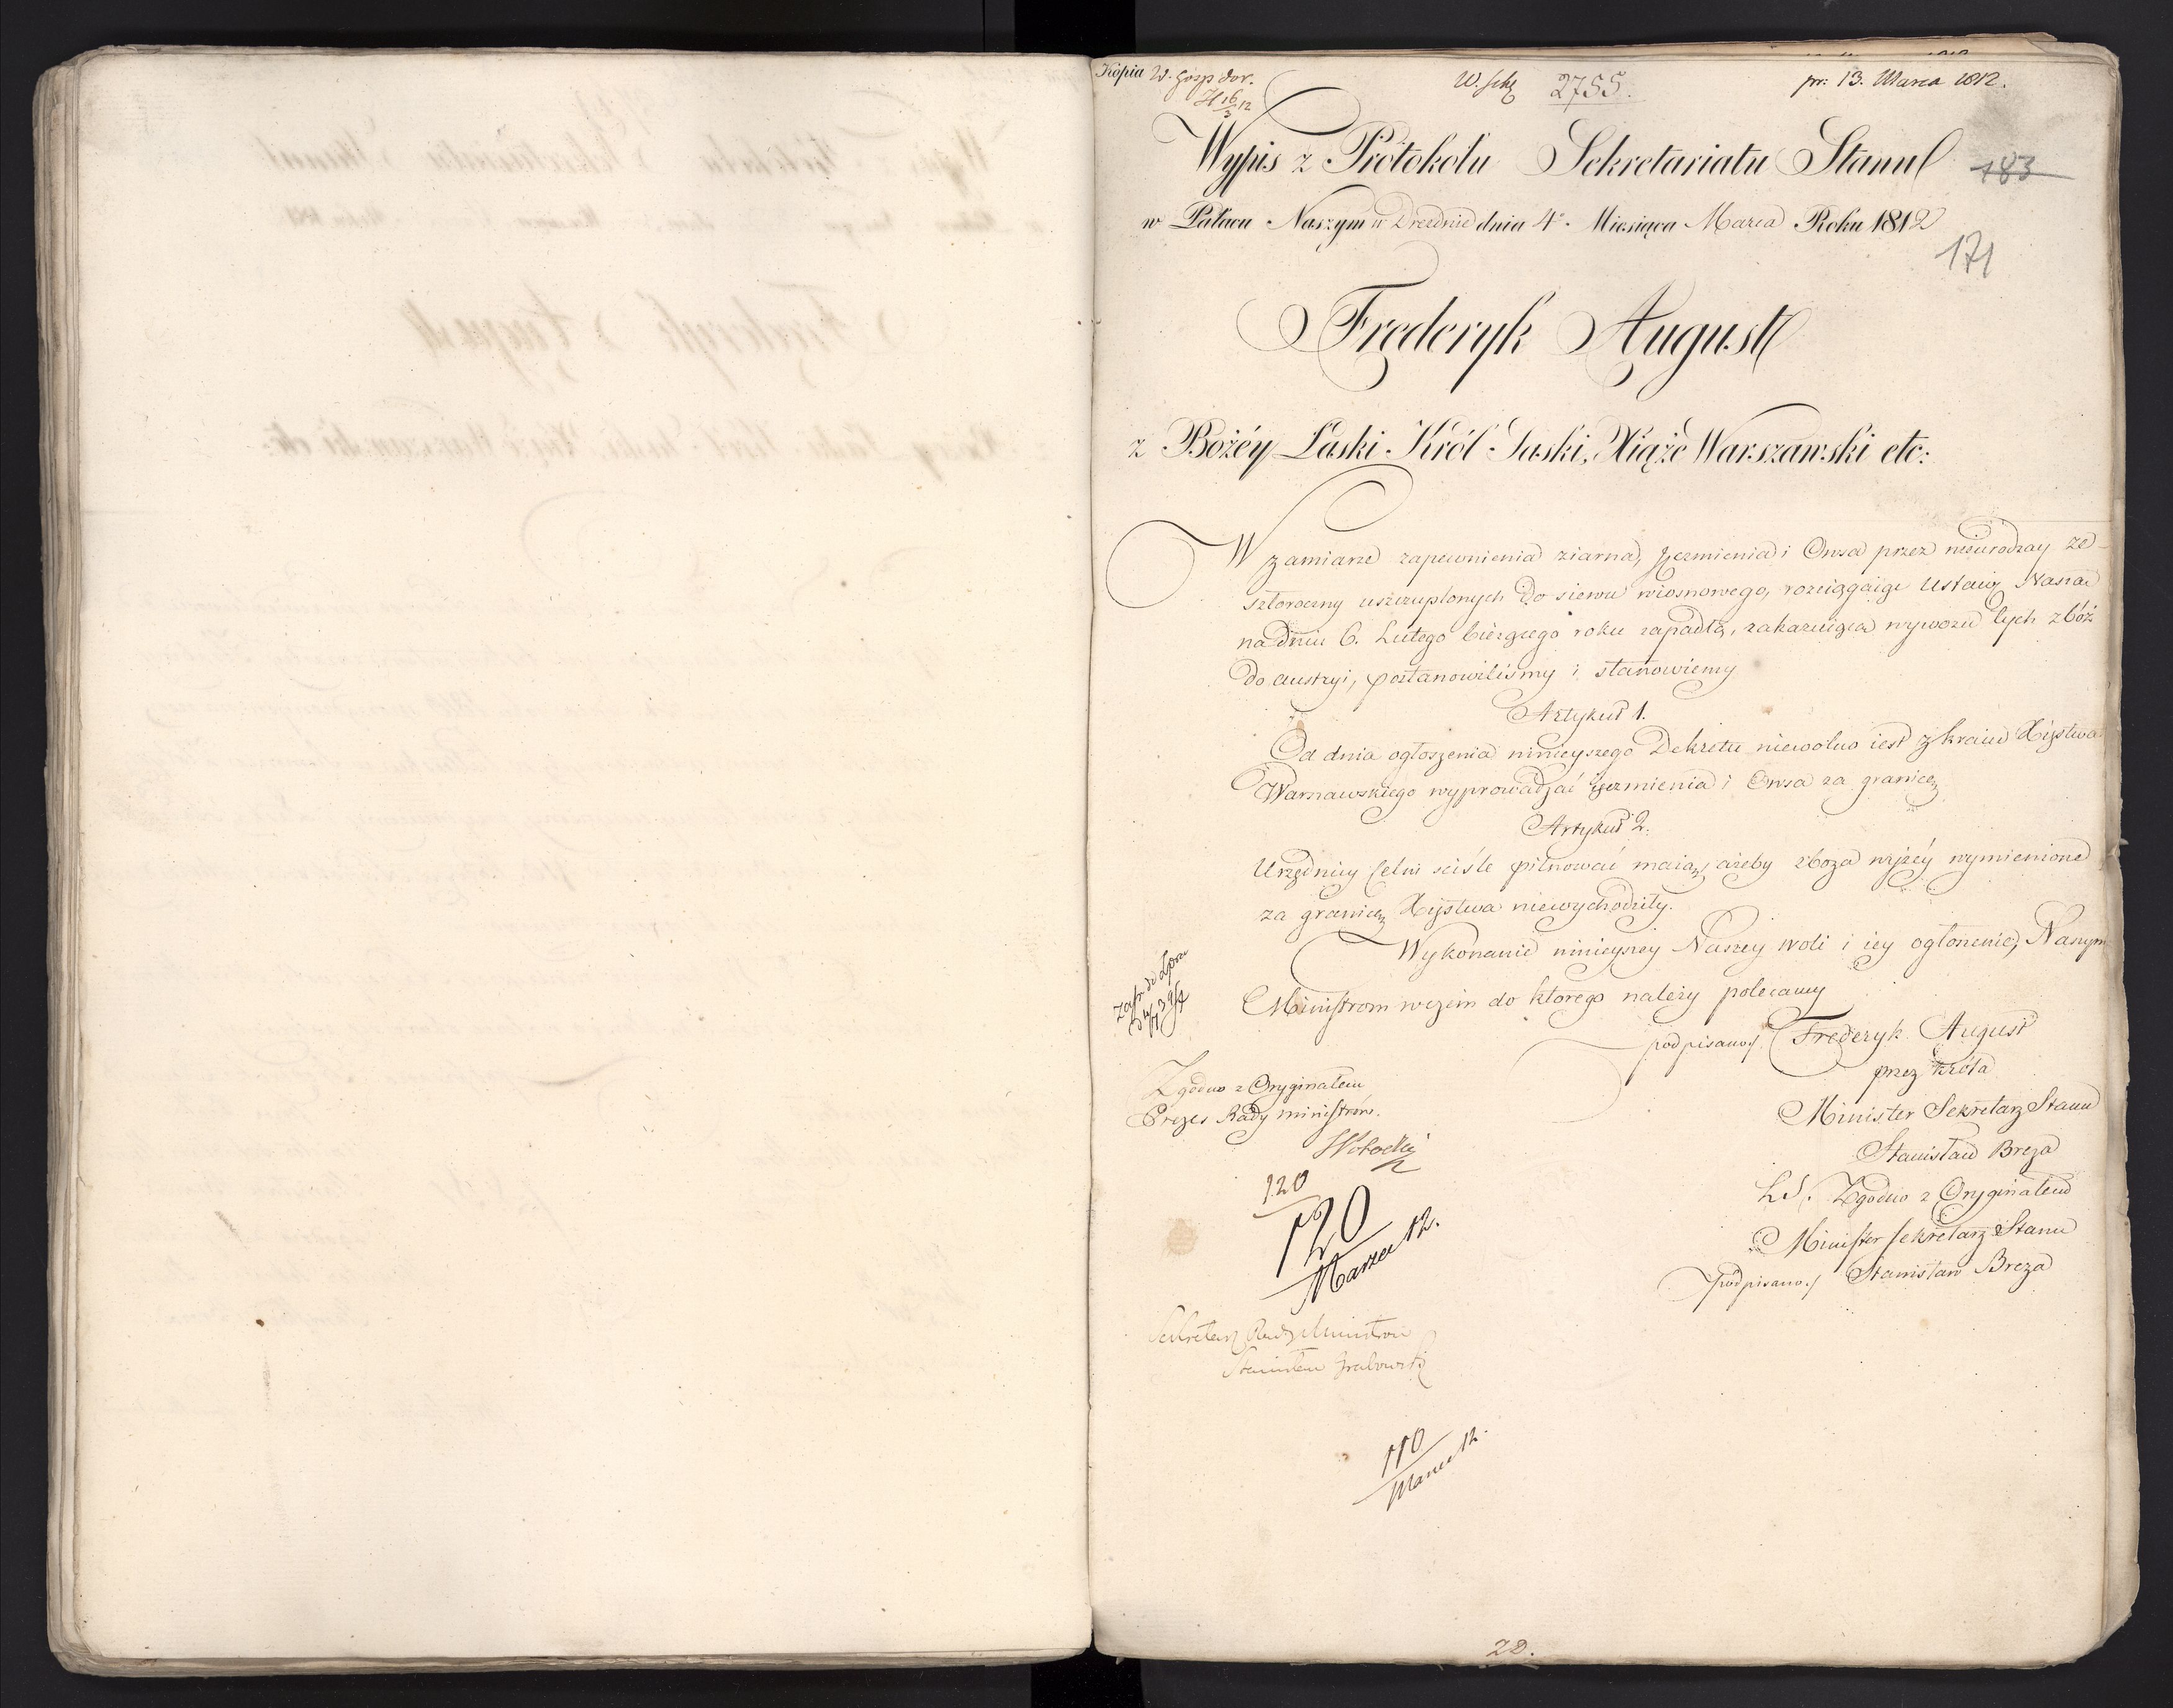 Kopia W. Gosp dor.
H 16/3 12
W. Sekr 2755.
pr: 13. Marca 1812.
Wypis z Protokołu Sekretariatu Stanu
183
w Pałacu Naszym w Dreznie dnia 4º. Miesiąca Marca Roku 1812
171
Frederyk August
z Bożéy Łaski Król Saski, Xiąże Warszawski etc:
W zamiarze zapewnienia ziarna, Jęczmienia i Owsa przez nieurodzay ze-
szłoroczny uszczuplonych do siewu wiosnowego, rozciągaiąc Ustawę Naszą
na dniu 6. Lutego bieżącego roku zapadłą, zakazuiącą wywozu tych zbóż
do Austryi, postanowiliśmy i stanowiemy
Artykuł 1.
Od dnia ogłoszenia ninieyszego Dekretu niewolno iest z kraiu Xięstwa
Warszawskiego wyprowadzać ięczmienia i Owsa za granicę
Artykuł 2.
Urzędnicy Celni sciśle pilnować maią, ażeby zboża wyżéy wymienione
za granicę Xięstwa niewychodziły.
Wykonanie ninieyszey Naszey woli i iey ogłoszenie, Naszym
Ministrom wczém do ktorego należy polecamy
podpisano/. Frederyk August
przez Króla
Minister Sekretarz Stanu
Stanisław Breza
L.S. Zgodno z Oryginałem
Minister Sekretarz Stanu
podpisano./ Stanisław Breza
Zgodno z Oryginałem
Prezes Rady ministrów.
120
120
Marca 12.
Sekretarz Rady Ministrow
Stanisław Grabowski
110
Marca 12.
20.